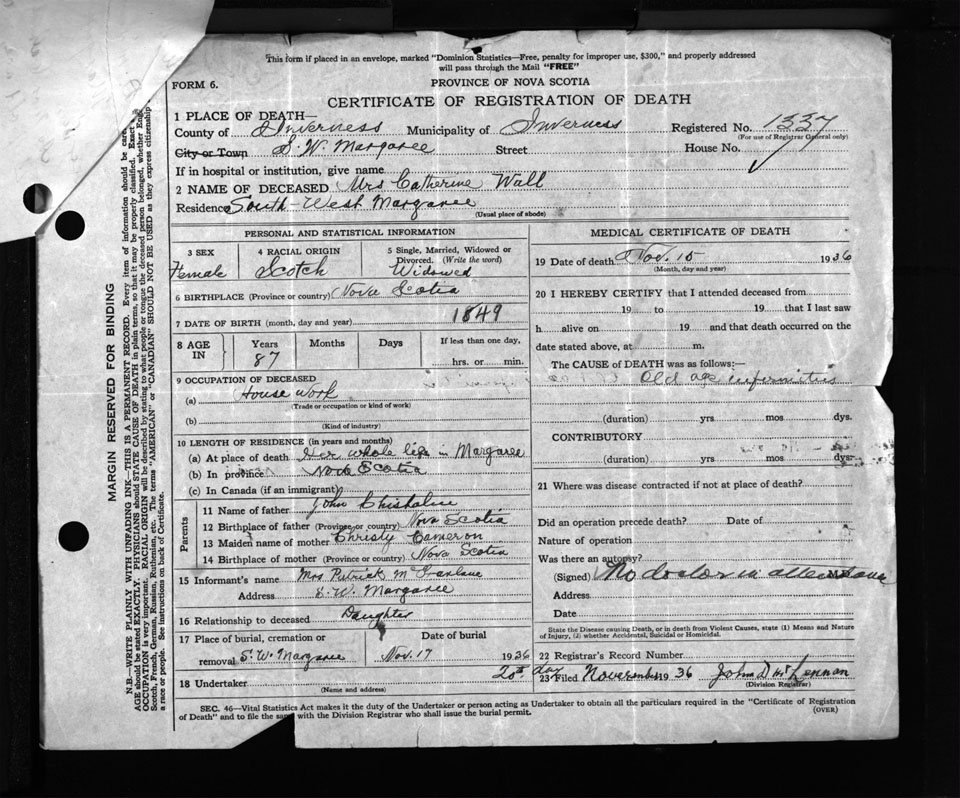 This form if placed in an envelope, marked "Dominion Statistics—Free, penalty for improper use, $300," and properly addressed
will pass through the Mail "FREE"
FORM 6.
PROVINCE OF NOVA SCOTIA
CERTIFICATE OF REGISTRATION OF DEATH
1 PLACE OF DEATH—
County of Inverness Municipality of Inverness Registered No. 1337
(For use of Registrar General only)
City or Town S. W. Margaree Street House No.
If in hospital or institution, give name
2 NAME OF DECEASED Mrs Catherine Wall
Residence South-West Margaree
(Usual place of abode)
PERSONAL AND STATISTICAL INFORMATION
3 SEX Female
4 RACIAL ORIGIN Scotch
5 Single, Married, Widowed or Divorced. (Write the word) Widowed
6 BIRTHPLACE (Province or country) Nova Scotia
7 DATE OF BIRTH (month, day and year) 1849
8 AGE IN Years Months Days If less than one day,
87 hrs. or min.
9 OCCUPATION OF DECEASED
(a) House work
(Trade or occupation or kind of work)
(b)
(Kind of industry)
10 LENGTH OF RESIDENCE (in years and months)
(a) At place of death Her whole life in Margaree
(b) In province Nova Scotia
(c) In Canada (if an immigrant)
Parents
11 Name of father John Chisholm
12 Birthplace of father (Province or country) Nova Scotia
13 Maiden name of mother Christy Cameron
14 Birthplace of mother (Province or country) Nova Scotia
15 Informant's name Mrs Patrick McFarlane
Address S. W. Margaree
16 Relationship to deceased Daughter
17 Place of burial, cremation or Date of burial
removal S. W. Margaree Nov. 17 1936
18 Undertaker
(Name and address)
MEDICAL CERTIFICATE OF DEATH
19 Date of death Nov. 15 1936
(Month, day and year)
20 I HEREBY CERTIFY that I attended deceased from
19 to 19 that I last saw
h alive on 19 and that death occurred on the
date stated above, at m.
The CAUSE of DEATH was as follows:—
Old age infirmities
(duration) yrs mos dys.
CONTRIBUTORY
(duration) yrs mos dys.
21 Where was disease contracted if not at place of death?
Did an operation precede death? Date of
Nature of operation
Was there an autopsy?
(Signed) No doctor in attendance
Address
Date
State the Disease causing Death, or in death from Violent Causes, state (1) Means and Nature
of Injury, (2) whether Accidental, Suicidal or Homicidal.
22 Registrar's Record Number
20th day
23 Filed November 1936 John D McLennan
(Division Registrar)
SEC. 46—Vital Statistics Act makes it the duty of the Undertaker or person acting as Undertaker to obtain all the particulars required in the "Certificate of Registration
of Death" and to file the same with the Division Registrar who shall issue the burial permit.
(OVER)
MARGIN RESERVED FOR BINDING
N.B.—WRITE PLAINLY WITH UNFADING INK—THIS IS A PERMANENT RECORD. Every item of information should be
AGE should be stated EXACTLY. PHYSICIANS should STATE CAUSE OF DEATH in plain terms, so that it may be properly classified. Exact
OCCUPATION is very important. RACIAL ORIGIN will be described by stating to what people or tongue the deceased person belonged, whether
Scotch, French, German, Russian, Ruthenian, etc. The terms "AMERICAN" or "CANADIAN" SHOULD NOT BE USED as they express citizenship
a race or people. See instructions on back of Certificate.